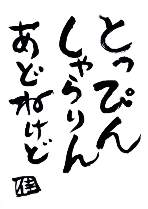 とっぴん
しゃらりん
あどねけど